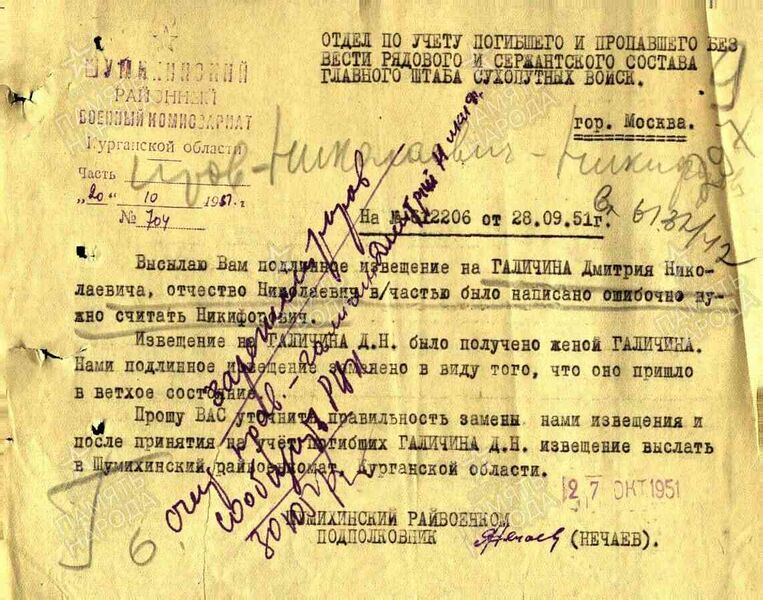 ШУМИХИНСКИЙ
РАЙОННЫЙ
ВОЕННЫЙ КОМИССАРИАТ
Курганской области
Часть
„20“ 10 1951 г.
№ 704
ОТДЕЛ ПО УЧЕТУ ПОГИБШЕГО И ПРОПАВШЕГО БЕЗ
ВЕСТИ РЯДОВОГО И СЕРЖАНТСКОГО СОСТАВА
ГЛАВНОГО ШТАБА СУХОПУТНЫХ ВОЙСК.
гор. Москва.
Николаевич -
На № 612206 от 28.09.51г.
Вх 6132/12
Высылаю Вам подлинное извещение на ГАЛИЧИНА Дмитрия Нико-
лаевича, отчество Николаевич в/частью было написано ошибочно ну-
жно считать Никифорович.
Извещение на ГАЛИЧИНА Д.Н. было получено женой ГАЛИЧИНА.
Нами подлинное извещение заменено в виду того, что оно пришло
в ветхое состояние.
Прошу ВАС уточнить правильность замены нами извещения и
после принятия на учёт погибших ГАЛИЧИНА Д.Н. извещение выслать
в Шумихинский райвоенкомат, Курганской области.
27 ОКТ 1951
ШУМИХИНСКИЙ РАЙВОЕНКОМ
ПОДПОЛКОВНИК Нечаев (НЕЧАЕВ).
6
ПАМЯТЬ
НАРОДА